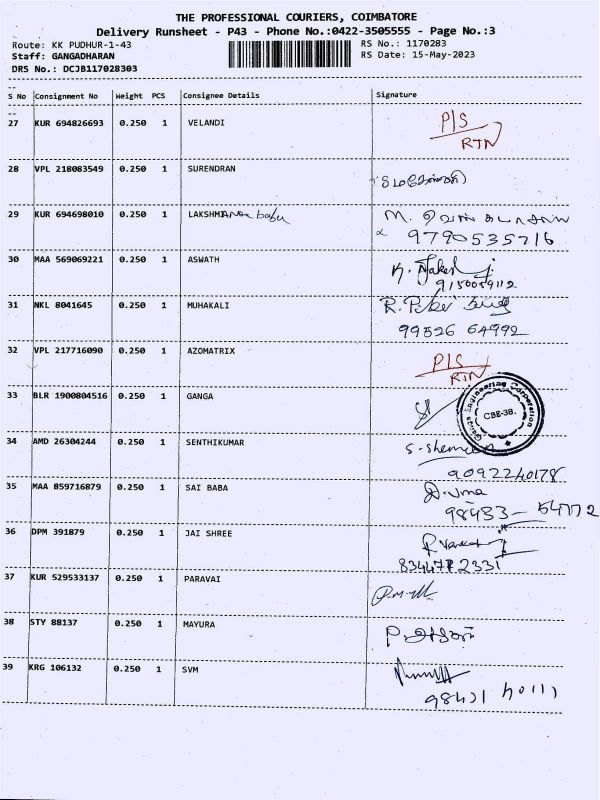 THE PROFESSIONAL COURIERS, COIMBATORE
Delivery Runsheet - P43 - Phone No.:0422-3505555 - Page No.:3
Route: KK PUDHUR-1-43 RS No.: 1170283
Staff: GANGADHARAN RS Date: 15-May-2023
DRS No.: DCJB117028303
S No Consignment No Weight PCS Consignee Details Signature
27 KUR 694826693 0.250 1 VELANDI P/S
RTN
28 VPL 218083549 0.250 1 SURENDRAN
29 KUR 694698010 0.250 1 LAKSHMI babu M.
9790535716
30 MAA 569069221 0.250 1 ASWATH K.
9150059112
31 NKL 8041645 0.250 1 MUHAKALI R.
99526 64992
32 VPL 217716090 0.250 1 AZOMATRIX P/S
RTN
33 BLR 1900804516 0.250 1 GANGA
Ganga Engineering Corporation
CBE-38.
34 AMD 26304244 0.250 1 SENTHIKUMAR
9092240178
35 MAA 859716879 0.250 1 SAI BABA D. Uma
98433 - 54772
36 DPM 391879 0.250 1 JAI SHREE
8344772331
37 KUR 529533137 0.250 1 PARAVAI
38 STY 88137 0.250 1 MAYURA
39 KRG 106132 0.250 1 SVM
98421 40111